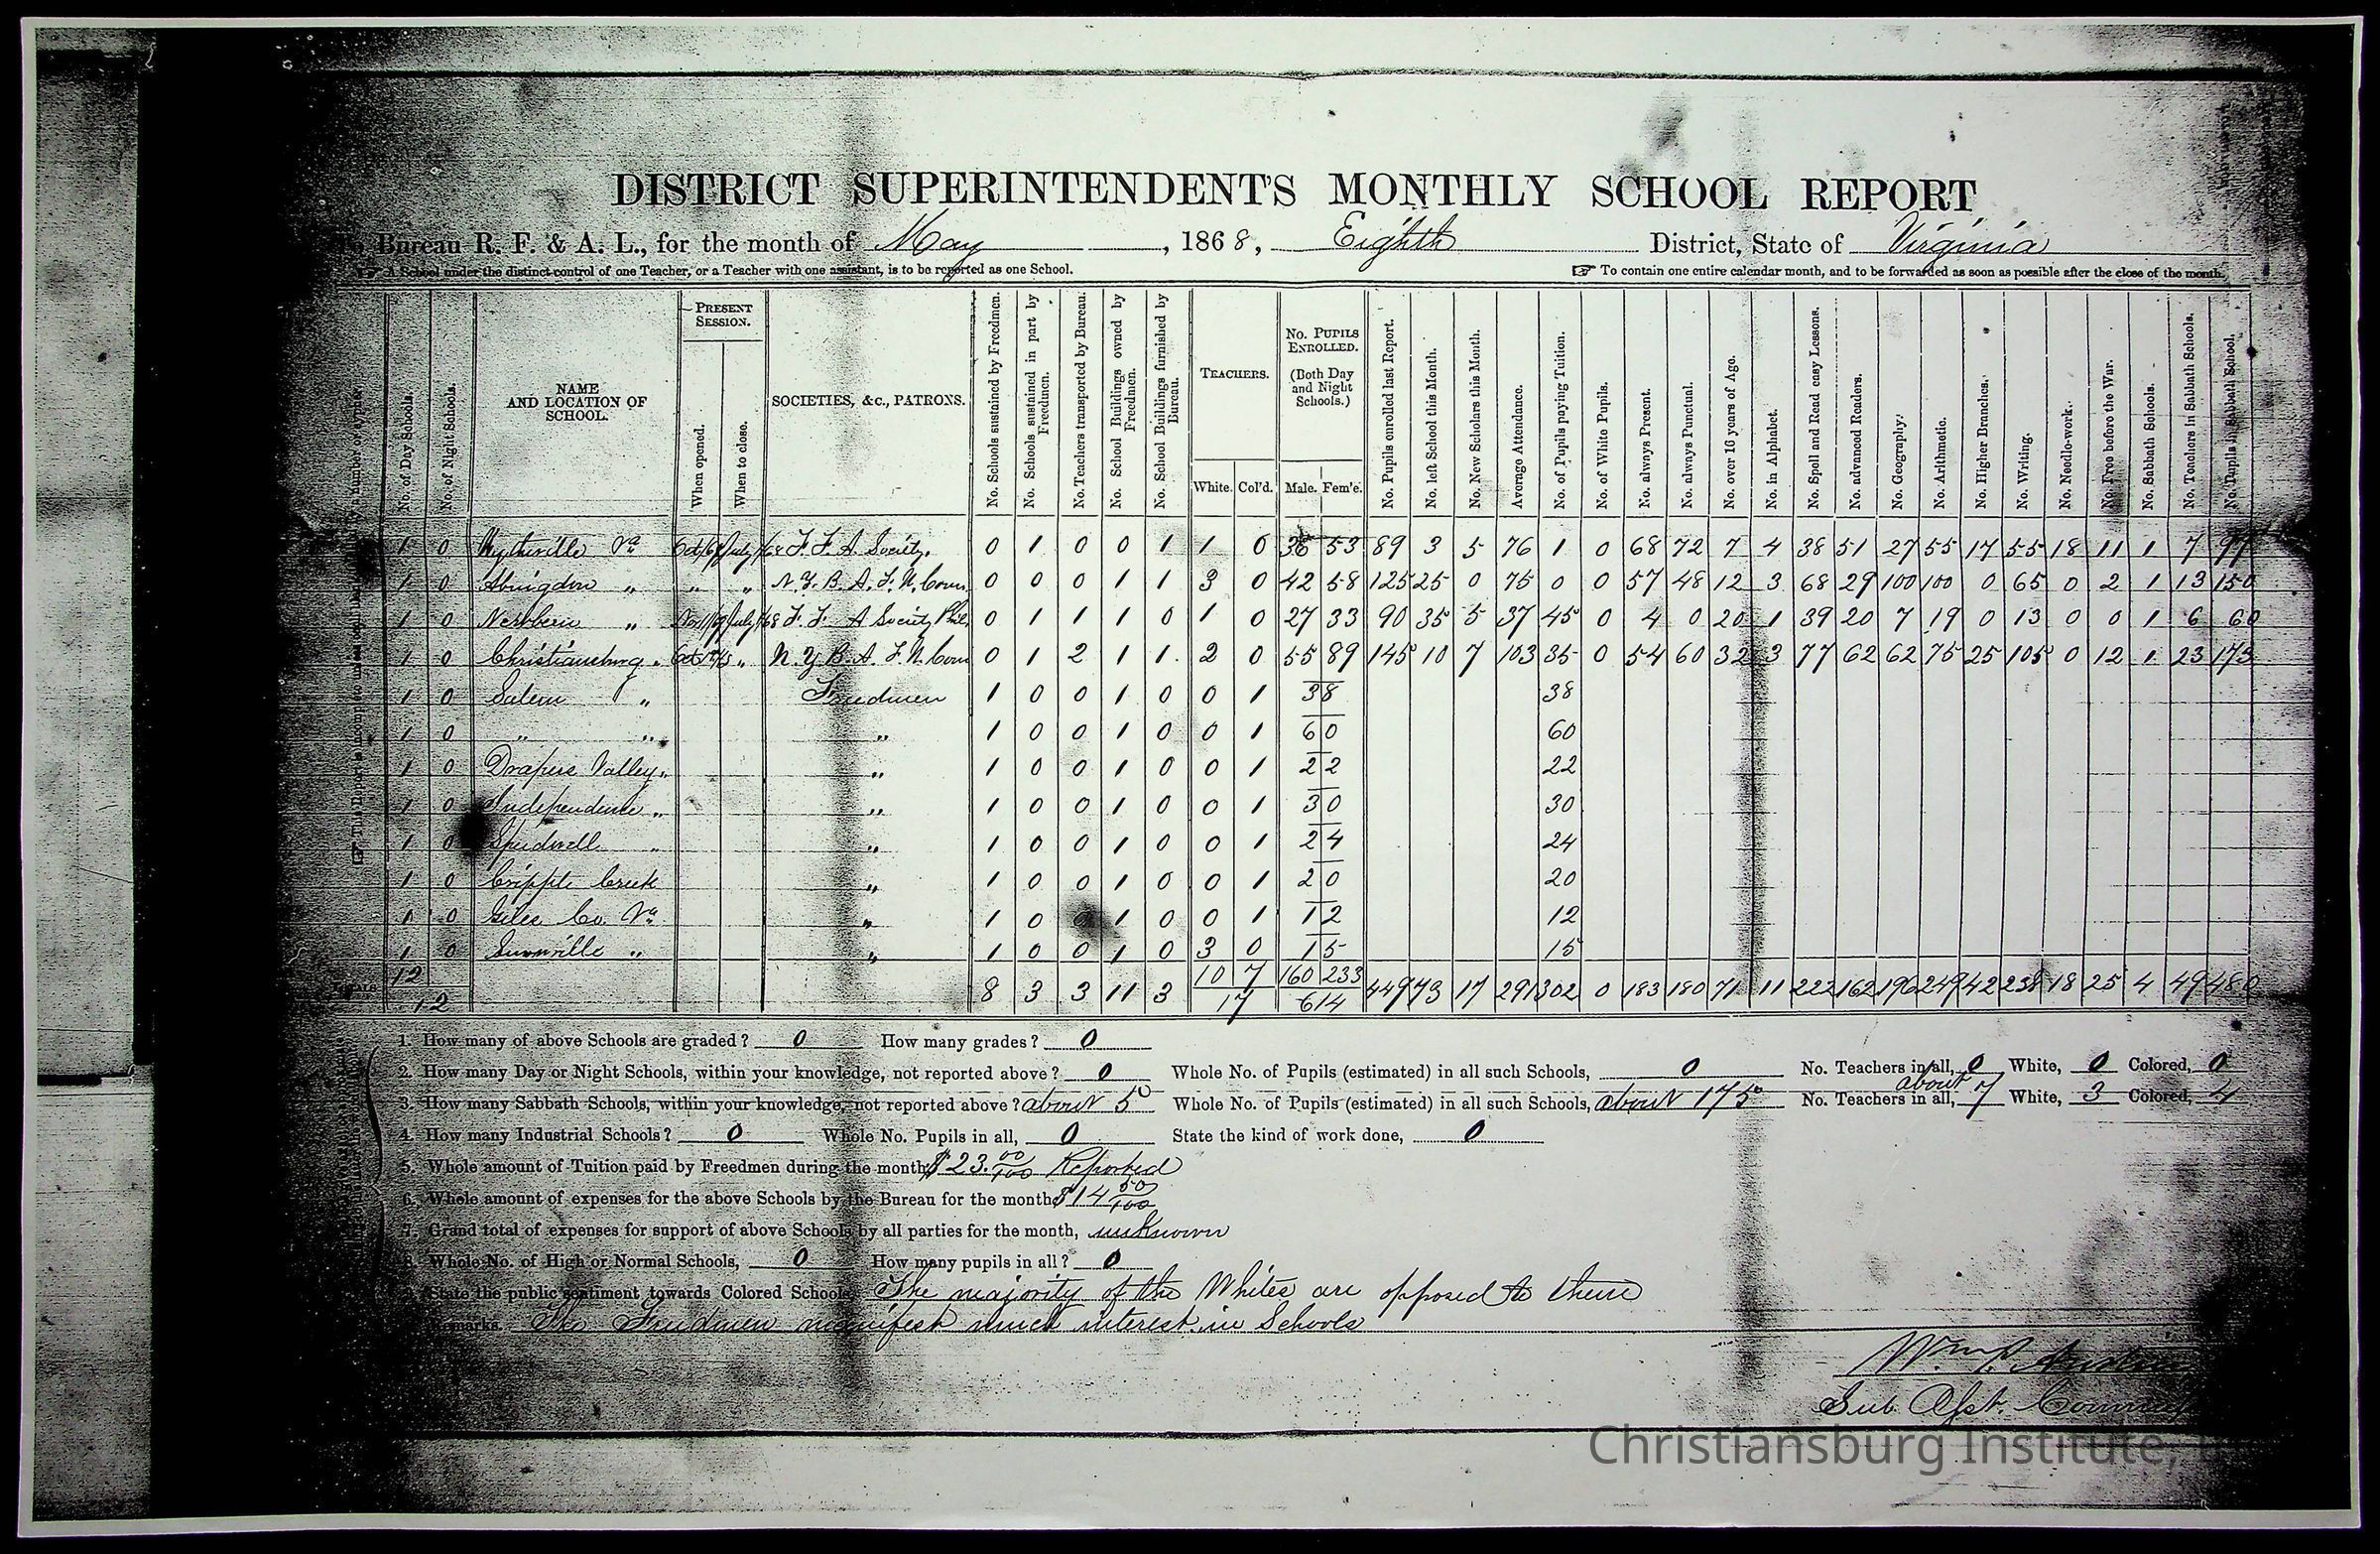 DISTRICT SUPERINTENDENT'S MONTHLY SCHOOL REPORT
Bureau R. F. & A. L., for the month of May, 1868, Eighth District, State of Virginia
A School under the distinct control of one Teacher, or a Teacher with one assistant, is to be reported as one School.
To contain one entire calendar month, and to be forwarded as soon as possible after the close of the month.
No. of Day Schools.
No. of Night Schools.
NAME AND LOCATION OF SCHOOL.
PRESENT SESSION.
When opened.
When to close.
SOCIETIES, &c., PATRONS.
No. Schools sustained by Freedmen.
No. Schools sustained in part by Freedmen.
No. Teachers transported by Bureau.
No. School Buildings owned by Freedmen.
No. School Buildings furnished by Bureau.
TEACHERS.
White. Col'd.
No. PUPILS ENROLLED.
(Both Day and Night Schools.)
Male. Fem'e.
No. Pupils enrolled last Report.
No. left School this Month.
No. New Scholars this Month.
Average Attendance.
No. of Pupils paying Tuition.
No. of White Pupils.
No. always Present.
No. always Punctual.
No. over 16 years of Age.
No. in Alphabet.
No. Spell and Read easy Lessons.
No. advanced Readers.
No. Geography.
No. Arithmetic.
No. Higher Branches.
No. Writing.
No. Needle-work.
No. Free before the War.
No. Sabbath Schools.
No. Teachers in Sabbath Schools.
No. Pupils in Sabbath School.
1 0 Wytheville Va F. F. A. Society. 0 1 0 0 1 1 0 36 53 89 3 5 76 1 0 68 72 7 4 38 51 27 55 17 55 18 11 1 7 97
1 0 Abingdon " " " N. Y. B. A. F. U. Com 0 0 0 1 1 3 0 42 58 125 25 0 75 0 0 57 48 12 3 68 29 100 100 0 65 0 2 1 13 150
1 0 Newbern " F. F. A Society Phil. 0 1 1 1 0 1 0 27 33 90 35 5 37 45 0 4 0 20 1 39 20 7 19 0 13 0 0 1 6 60
1 0 Christiansburg " " N. Y B. A. F. U. Com 0 1 2 1 1 2 0 55 89 145 10 7 103 35 0 54 60 32 3 77 62 62 75 25 105 0 12 1 23 173
1 0 Salem " Freedmen 1 0 0 1 0 0 1 38 38
1 0 " " " 1 0 0 1 0 0 1 60 60
1 0 Drapers Valley " " 1 0 0 1 0 0 1 22 22
1 0 Independence " " 1 0 0 1 0 0 1 30 30
1 0 Speedwell " " 1 0 0 1 0 0 1 24 24
1 0 Cripple Creek " 1 0 0 1 0 0 1 20 20
1 0 Giles Co. Va " 1 0 1 0 0 1 12 12
1 0 " " 1 0 0 1 0 3 0 15 15
12 10 7 160 233
12 8 3 3 11 3 17 614 449 73 17 291 302 0 183 180 71 11 222 162 196 249 42 238 18 25 4 49 480
1. How many of above Schools are graded? 0 How many grades? 0
2. How many Day or Night Schools, within your knowledge, not reported above? 0 Whole No. of Pupils (estimated) in all such Schools, 0 No. Teachers in all, 0 White, 0 Colored, 0
3. How many Sabbath Schools, within your knowledge, not reported above? about 5 Whole No. of Pupils (estimated) in all such Schools, about 175 No. Teachers in all, about 7 White, 3 Colored, 4
4. How many Industrial Schools? 0 Whole No. Pupils in all, 0 State the kind of work done, 0
5. Whole amount of Tuition paid by Freedmen during the month, $23.00/100 Reported
6. Whole amount of expenses for the above Schools by the Bureau for the month, $14 50/100
7. Grand total of expenses for support of above Schools by all parties for the month, unknown
8. Whole No. of High or Normal Schools, 0 How many pupils in all? 0
9. State the public sentiment towards Colored Schools, The majority of the Whites are opposed to them
Remarks. The Freedmen manifest much interest in Schools
Wm. P.
Sub. Asst.
Christiansburg Institute,